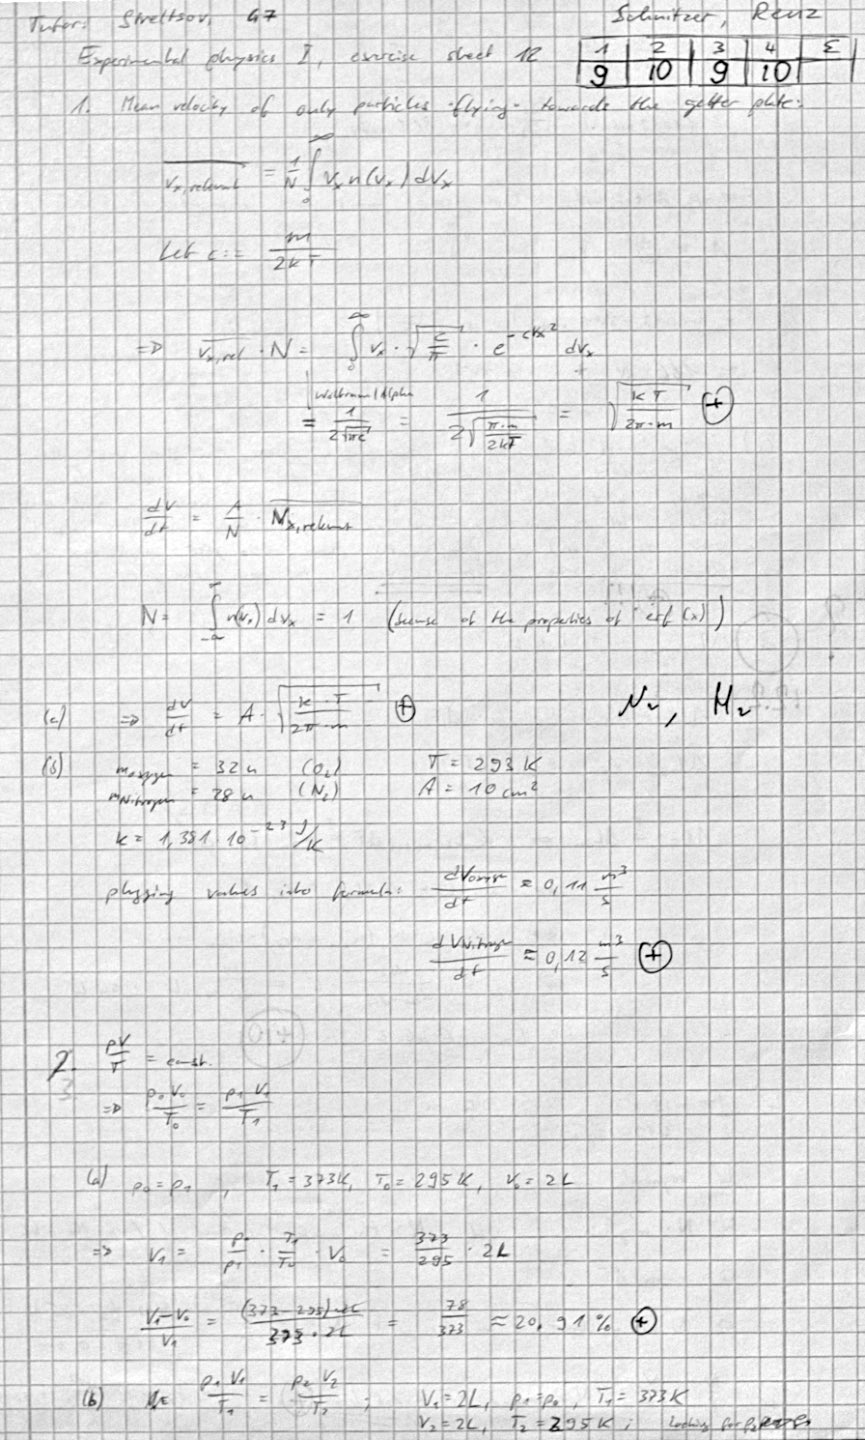 Tutor: Streltsov, G7
Schnitzer, Renz
Experimental physics I, exercise sheet 12
1 2 3 4 Σ
9 10 9 10
1. Mean velocity of only particles flying towards the getter plate:
v̅x,relevant = 1/N ∫₀^∞ vx n(vx) dvx
Let c := m/(2kT)
=> v̅x,rel · N = ∫₀^∞ vx · √(c/π) · e^(-cvx²) dvx
Wolfram|Alpha
= 1/(2√(πc)) = 1/(2√(π·m/(2kT))) = √(kT/(2π·m)) ⊕
dV/dt = A/N · N̅x,relevant
N = ∫_-∞^∞ n(vx) dvx = 1 ( of the properties of erf(x))
(a) => dV/dt = A · √(k·T/(2π·m)) ⊕
N₂, H₂
(b) moxygen = 32u (O₂) T = 293 K
mNitrogen = 28u (N₂) A = 10 cm²
k = 1,381 · 10^-23 J/K
plugging values into formula: dVoxygen/dt ≈ 0,11 m³/s
dVNitrogen/dt ≈ 0,12 m³/s ⊕
2. pV/T = const.
=> p₀V₀/T₀ = p₁V₁/T₁
(a) p₀ = p₁, T₁ = 373K, T₀ = 295K, V₀ = 2L
=> V₁ = p₀/p₁ · T₁/T₀ · V₀ = 373/295 · 2L
(V₁-V₀)/V₁ = (373-295)·2L/(373·2L) = 78/373 ≈ 20,91 % ⊕
(b) p₁V₁/T₁ = p₂V₂/T₂ ; V₁=2L, p₁=p₀, T₁ = 373K
V₂=2L, T₂=295K ; Looking for p₂